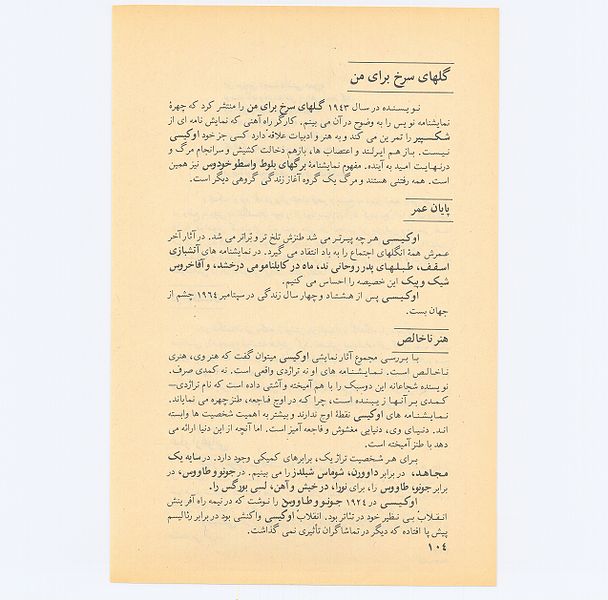 گلهای سرخ برای من
نویسنده در سال ۱۹۴۳ گلهای سرخ برای من را منتشر کرد که چهرهٔ
نمایشنامه نویس را به وضوح در آن می بینم. کارگر راه آهنی که نمایش نامه ای از
شکسپیر را تمرین می کند و به هنر و ادبیات علاقه دارد کسی جز خود اوکیسی
نیست. باز هم ایرلند و اعتصاب ها، بازهم دخالت کشیش و سرانجام مرگ و
درنهایت امید به آینده. مفهوم نمایشنامهٔ برگهای بلوط واسطوخودوس نیز همین
است. همه رفتنی هستند و مرگ یک گروه آغاز زندگی گروهی دیگر است.
پایان عمر
اوکیسی هر چه پیرتر می شد طنزش تلخ تر و بُراتر می شد. در آثار آخر
عمرش همهٔ انگلهای اجتماع را به باد انتقاد می گیرد. در نمایشنامه های آتشبازی
اسقف، طبلهای پدر روحانی ند، ماه در کایلنامومی درخشد، و آقاخروس
شیک و پیک این خصیصه را احساس می کنیم.
اوکیسی پس از هشتاد و چهار سال زندگی در سپتامبر ۱۹۶۴ چشم از
جهان بست.
هنر ناخالص
با بررسی مجموع آثار نمایشی اوکیسی میتوان گفت که هنر وی، هنری
ناخالص است. نمایشنامه های او نه تراژدی واقعی است. نه کمدی صرف.
نویسنده شجاعانه این دوسبک را با هم آمیخته و آشتی داده است که نام تراژدی–
کمدی بر آنها زیبنده است، چرا که در اوج فاجعه، طنز چهره می نمایاند.
نمایشنامه های اوکیسی نقطهٔ اوج ندارند و بیشتر به اهمیت شخصیت ها وابسته
اند. دنیای وی، دنیایی مغشوش و فاجعه آمیز است. اما آنچه از این دنیا ارائه می
دهد با طنز آمیخته است.
برای هر شخصیت تراژیک، برابرهای کمیکی وجود دارد. در سایه یک
مجاهد، در برابر داوورن، شوماس شیلدز را می بینیم. در جونو و طاووس، در
برابر جونو، طاووس را، برای نورا، در خیش و آهن، لسی بورگس را.
اوکیسی در ۱۹۲۴ جونو و طاووس را نوشت که در نیمه راه آفرینش
انقلاب بی نظیر خود در تئاتر بود. انقلاب اوکیسی واکنشی بود در برابر رئالیسم
پیش پا افتاده که دیگر در تماشاگران تأثیری نمی گذاشت.
۱۰۴